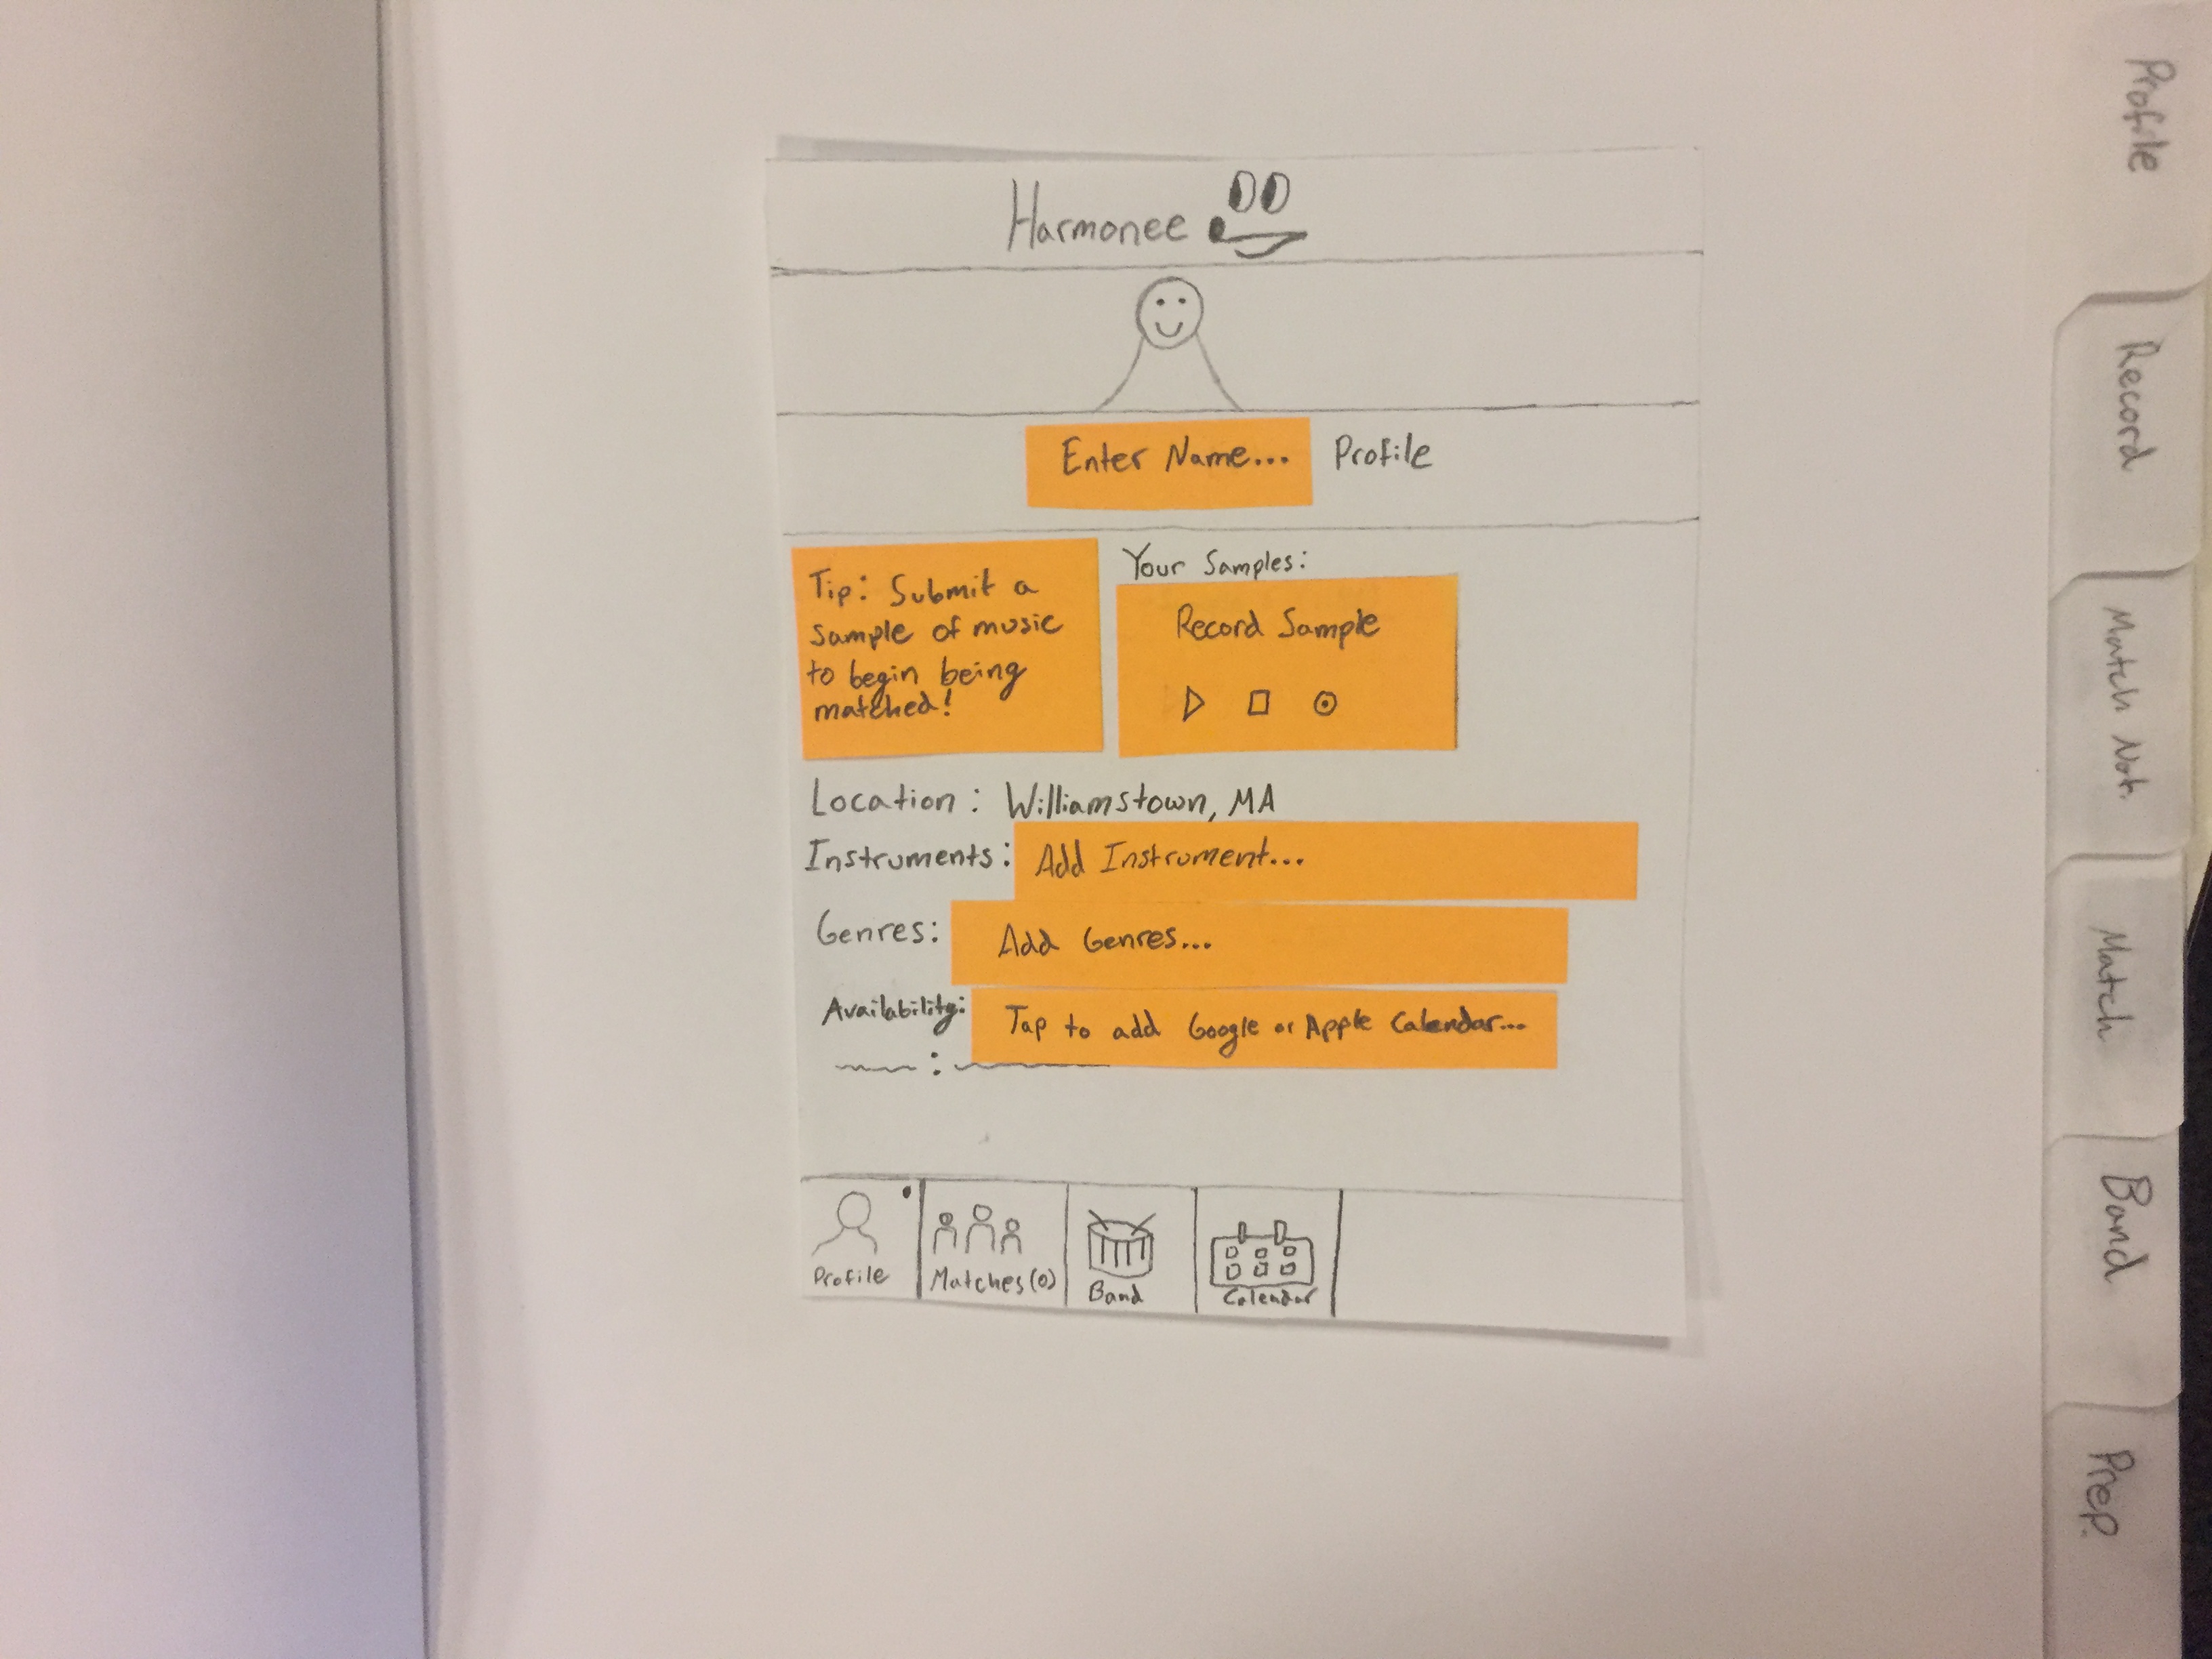 Harmonee
Enter Name... Profile
Tip: Submit a
sample of music
to begin being
matched!
Your Samples:
Record Sample
Location: Williamstown, MA
Instruments: Add Instrument...
Genres: Add Genres...
Availability: Tap to add Google or Apple Calendar...
Profile
Matches(0)
Band
Calendar
Profile
Record
Match Not.
Match
Band
Prep